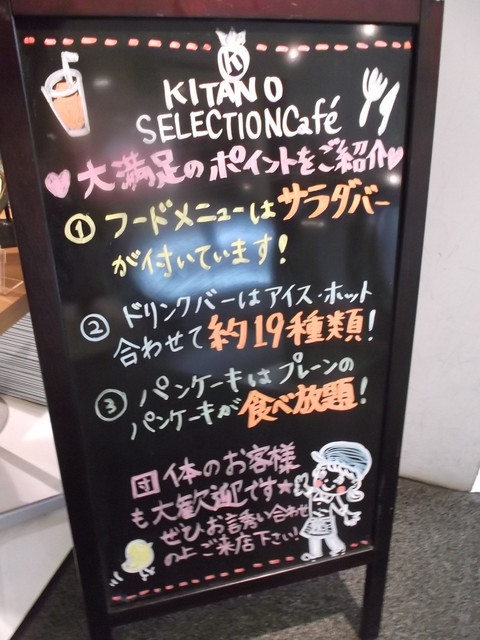 K
KITANO
SELECTION Café
大満足のポイントをご紹介
① フードメニューはサラダバー
が付いています!
② ドリンクバーはアイス・ホット
合わせて約19種類!
③ パンケーキはプレーンの
パンケーキが食べ放題!
団体のお客様
も大歓迎です★
ぜひお誘い合わせ
の上ご来店下さい!